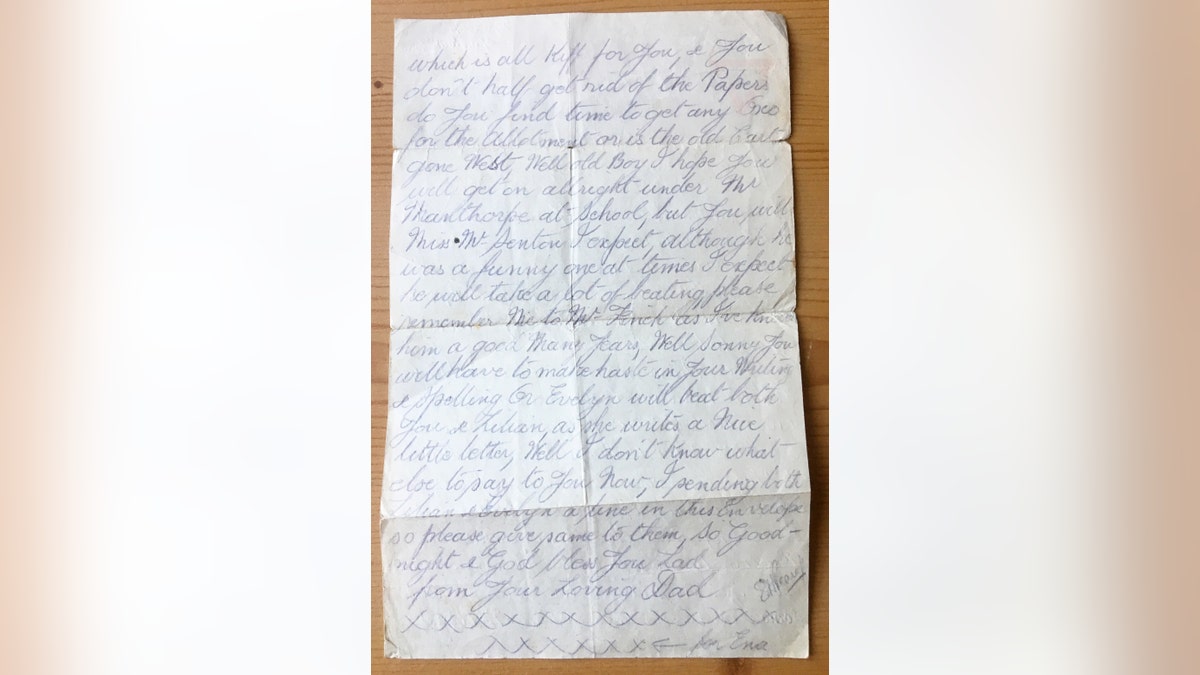 which is all Kiff for You, & You
don't half get rid of the Papers
do You find time to get any
for the Allotment or is the old Cart
gone West, Well old Boy I hope You
will get on allright under Mr
Manthorpe at School, but You will
Miss Mr. Senton I expect, although he
was a funny one at times I expect
he will take a lot of beating, please
remember Me to Mr Finch as I've
him a good Many Years, Well Sonny You
will have to make haste in Your Writing
& Spelling Or Evelyn will beat both
You & Lilian, as she writes a Nice
little letter, Well I don't Know what
else to say to You Now, I sending both
Lilian & Evelyn a line in this Envelope
so please give same to them, So Good-
night & God bless You Lad
from Your Loving Dad
x x x x x x x x x x x x
x x x x x x ← for Ena